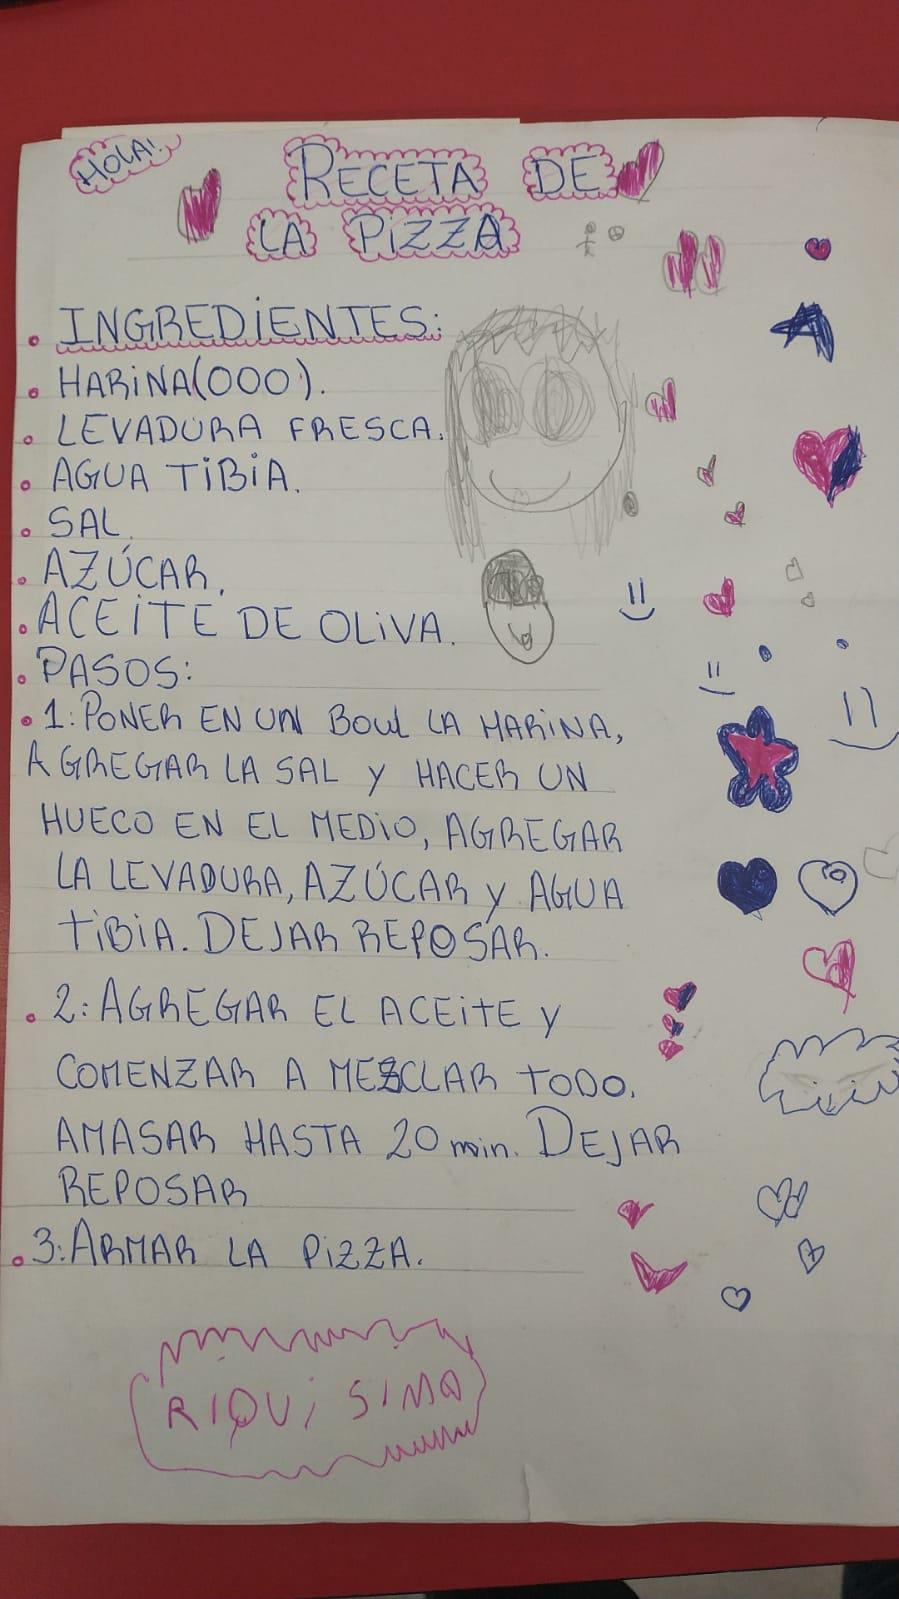 HOLA!
RECETA DE
LA PIZZA
• INGREDIENTES:
• HARINA(000).
• LEVADURA FRESCA.
• AGUA TIBIA.
• SAL.
• AZÚCAR.
• ACEITE DE OLIVA.
• PASOS:
• 1: PONER EN UN BOWL LA HARINA,
AGREGAR LA SAL Y HACER UN
HUECO EN EL MEDIO, AGREGAR
LA LEVADURA, AZÚCAR Y AGUA
TIBIA. DEJAR REPOSAR.
• 2: AGREGAR EL ACEITE Y
COMENZAR A MEZCLAR TODO.
AMASAR HASTA 20 min. DEJAR
REPOSAR
• 3: ARMAR LA PIZZA.
RIQUISIMA
A